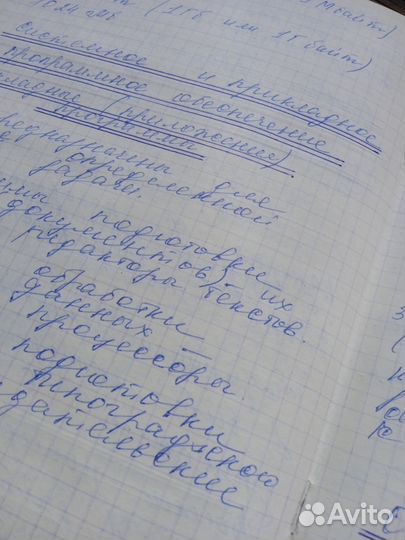 (1Гб или 1Гбайт) Мбайт)
1024 Мб
системное и прикладное
программное обеспечение
(приложения)
программы
предназначены для
определенной
задачи.
подготовки
документов, их
редакторы текстов.
обработки
данных —
процессоры.
подготовки
типографского
издательские
Avito